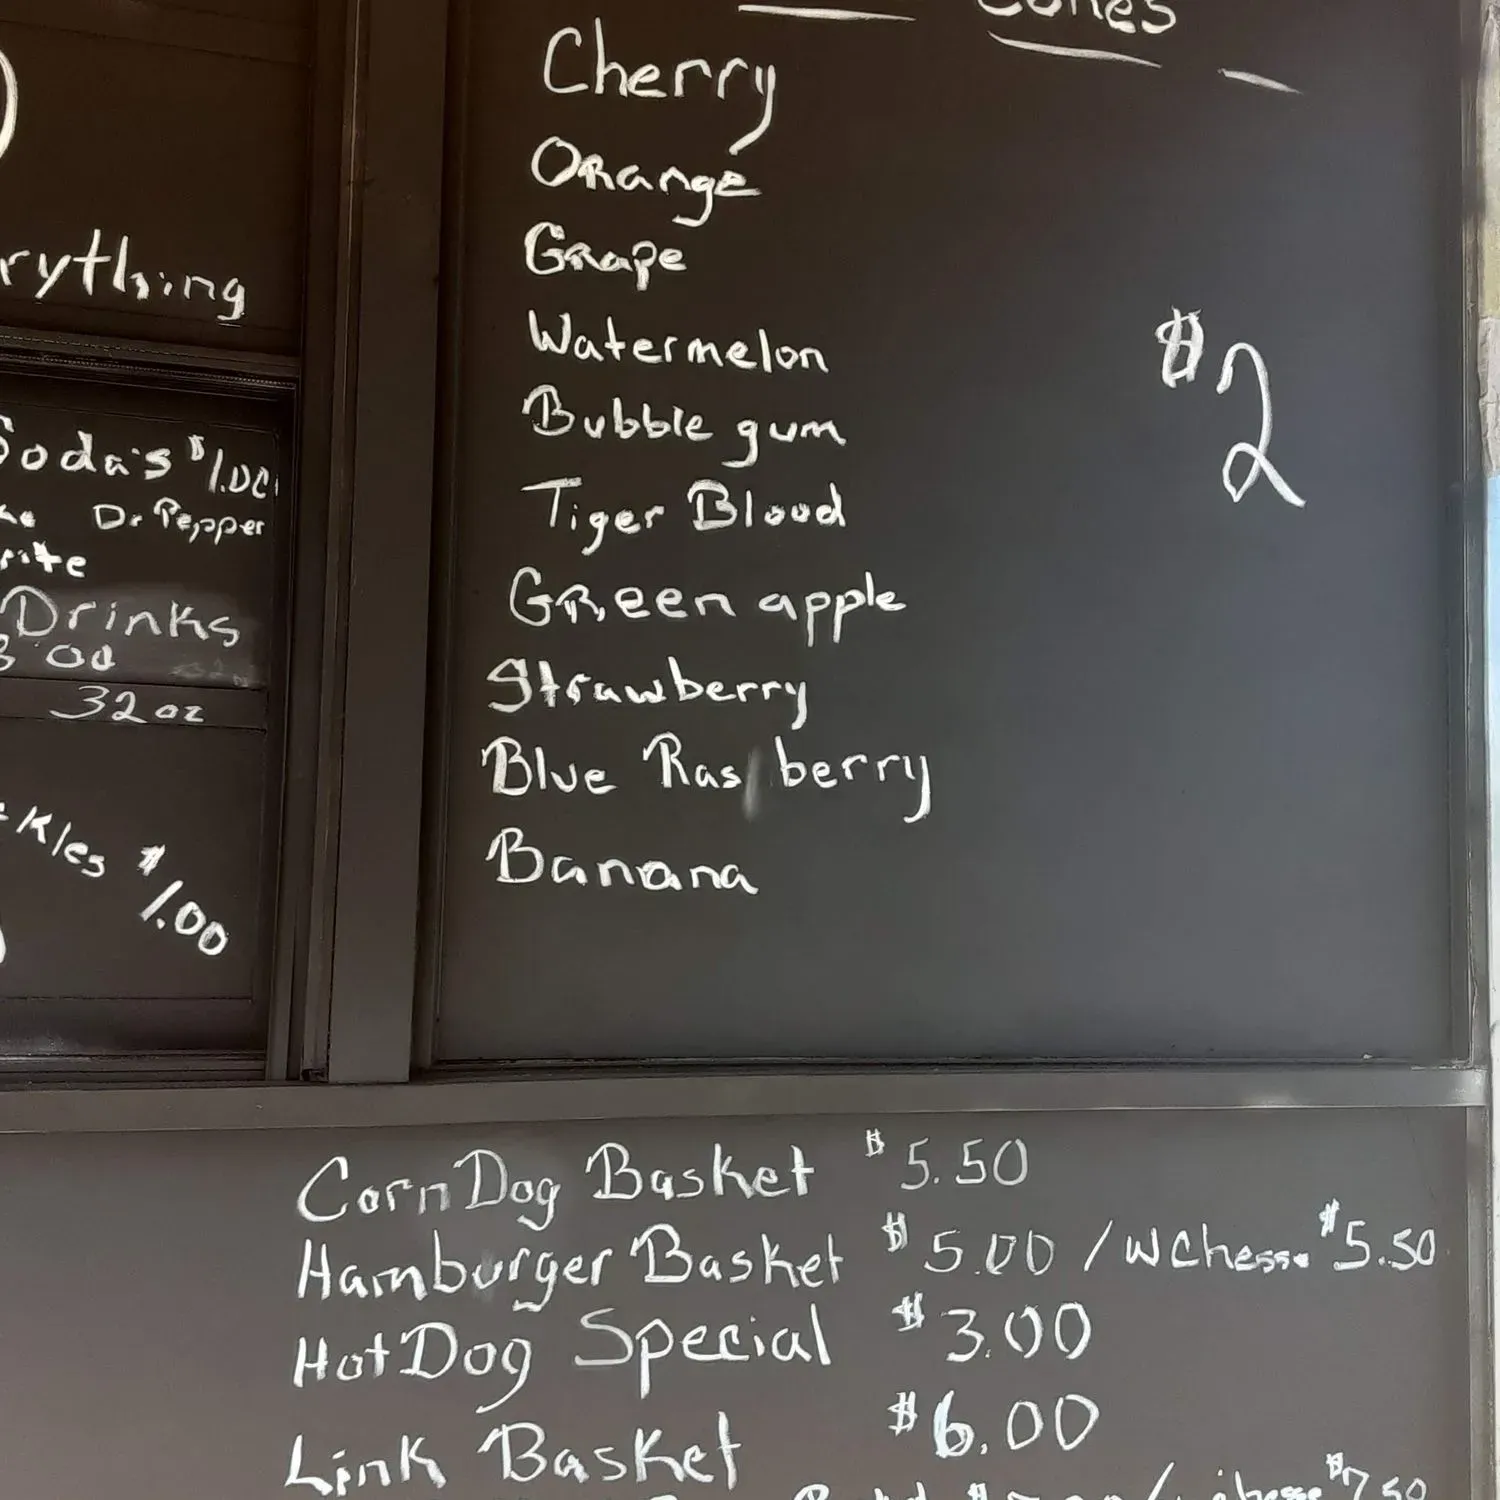 Cones
Cherry
Orange
Grape
Watermelon
Bubble gum
Tiger Blood
Green apple
Strawberry
Blue Ras berry
Banana
$2
rything
Soda's $1.00
Dr Pepper
rite
Drinks
32oz
Kles $1.00
Corn Dog Basket $5.50
Hamburger Basket $5.00 / W Chesse $5.50
Hot Dog Special $3.00
Link Basket $6.00
$7.50